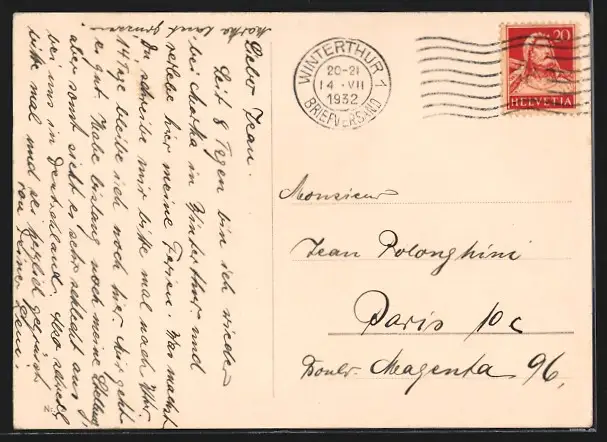 Martha lässt grüssen
Lieber Jean.
Seit 8 Tagen bin ich wieder
bei Martha in Winterthur und
verlebe hier meine Ferien. Was machst
Du, schreibe mir bitte mal nach Wthr
14 Tage bleibe ich noch hier. Mir geht
es gut. Habe bislang noch meine Stellung
aber sonst sieht es sehr schlecht aus
bei uns in Deutschland. Also schreib
bitte mal und sei herzlich gegrüsst
von
WINTERTHUR 1
20-21
14·VII
1932
BRIEFVERSAND
20
HELVETIA
Monsieur
Jean Polonghini
Paris 10c
Boulv. Magenta 96,